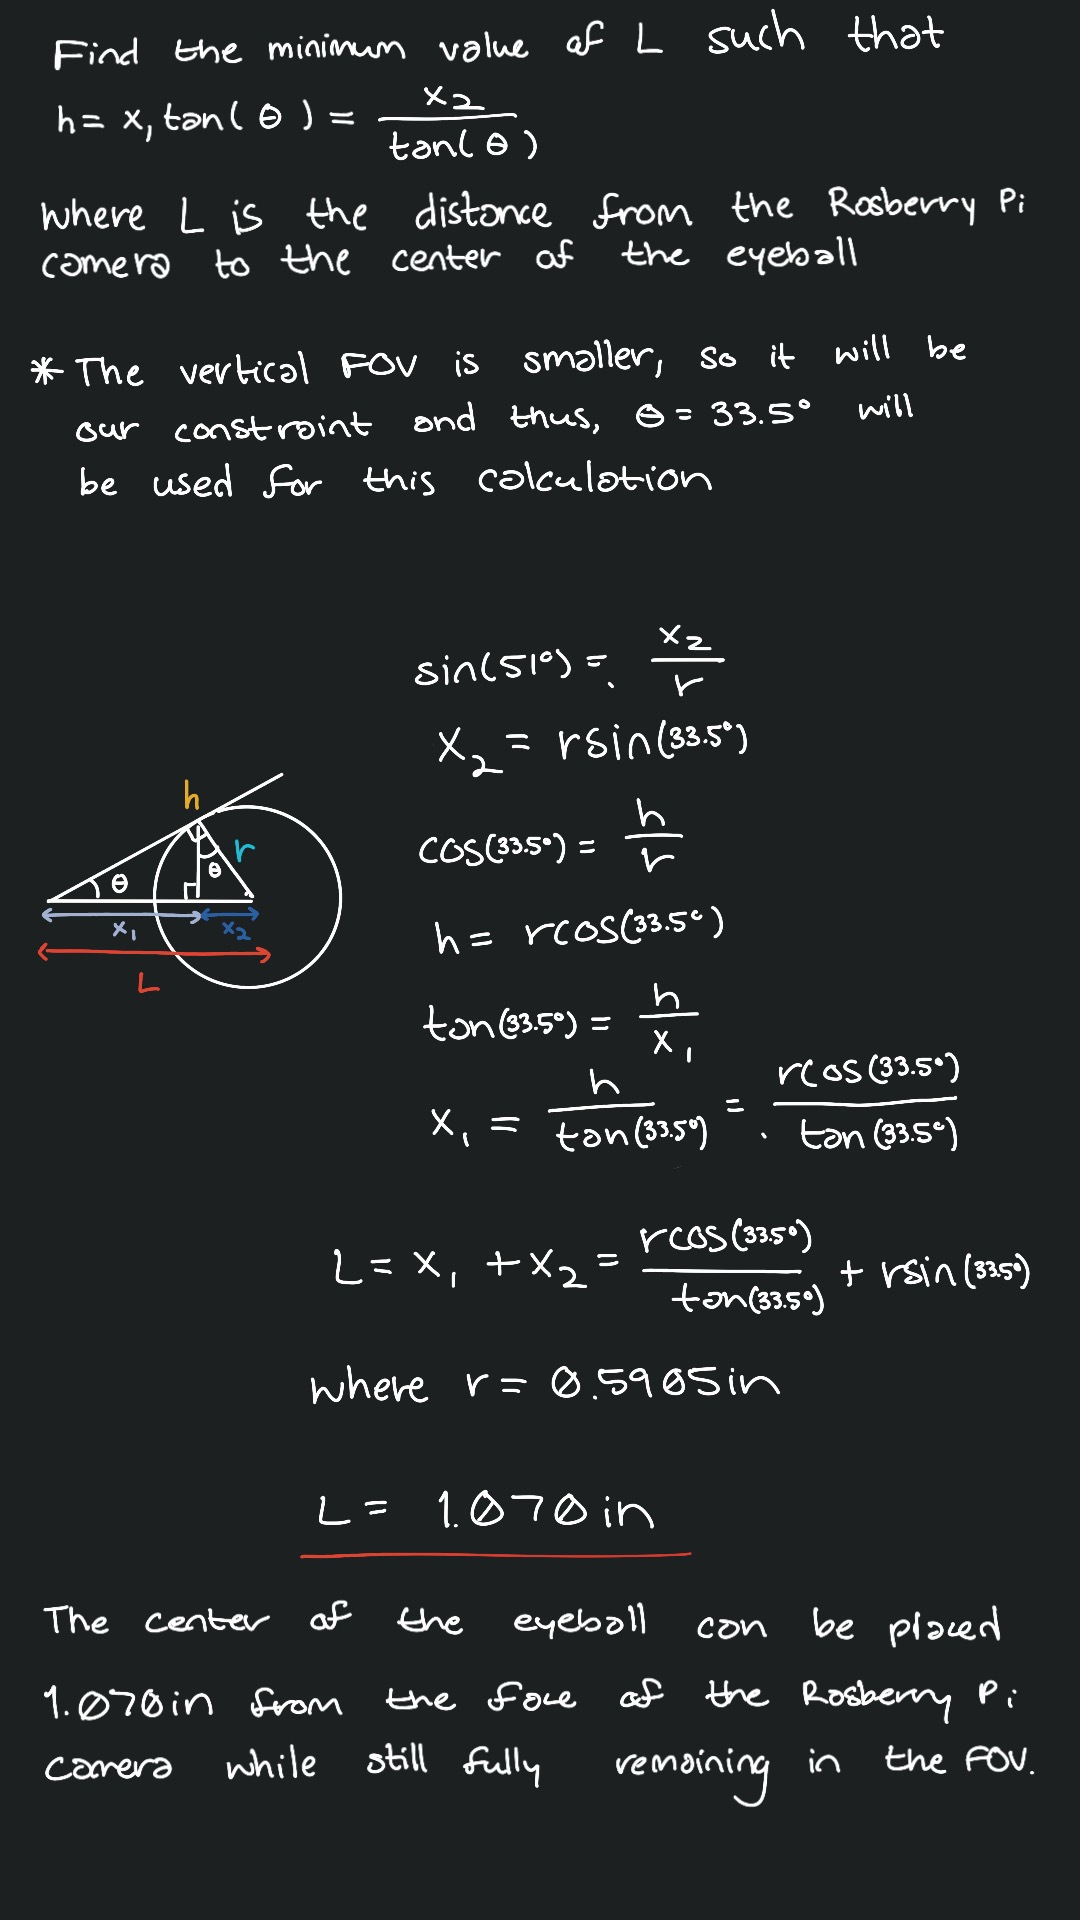 Find the minimum value of L such that
h = x₁ tan(θ) = x₂ / tan(θ)
where L is the distance from the Rasberry Pi
camera to the center of the eyeball
* The vertical FOV is smaller, so it will be
our constraint and thus, θ = 33.5° will
be used for this calculation
sin(51°) = x₂ / r
x₂ = rsin(33.5°)
h
r
θ
θ
x₁
x₂
L
cos(33.5°) = h / r
h = rcos(33.5°)
tan(33.5°) = h / x₁
x₁ = h / tan(33.5°) = rcos(33.5°) / tan(33.5°)
L = x₁ + x₂ = rcos(33.5°) / tan(33.5°) + rsin(33.5°)
where r = 0.5905in
L = 1.070in
The center of the eyeball can be placed
1.070in from the face of the Rasberry Pi
camera while still fully remaining in the FOV.